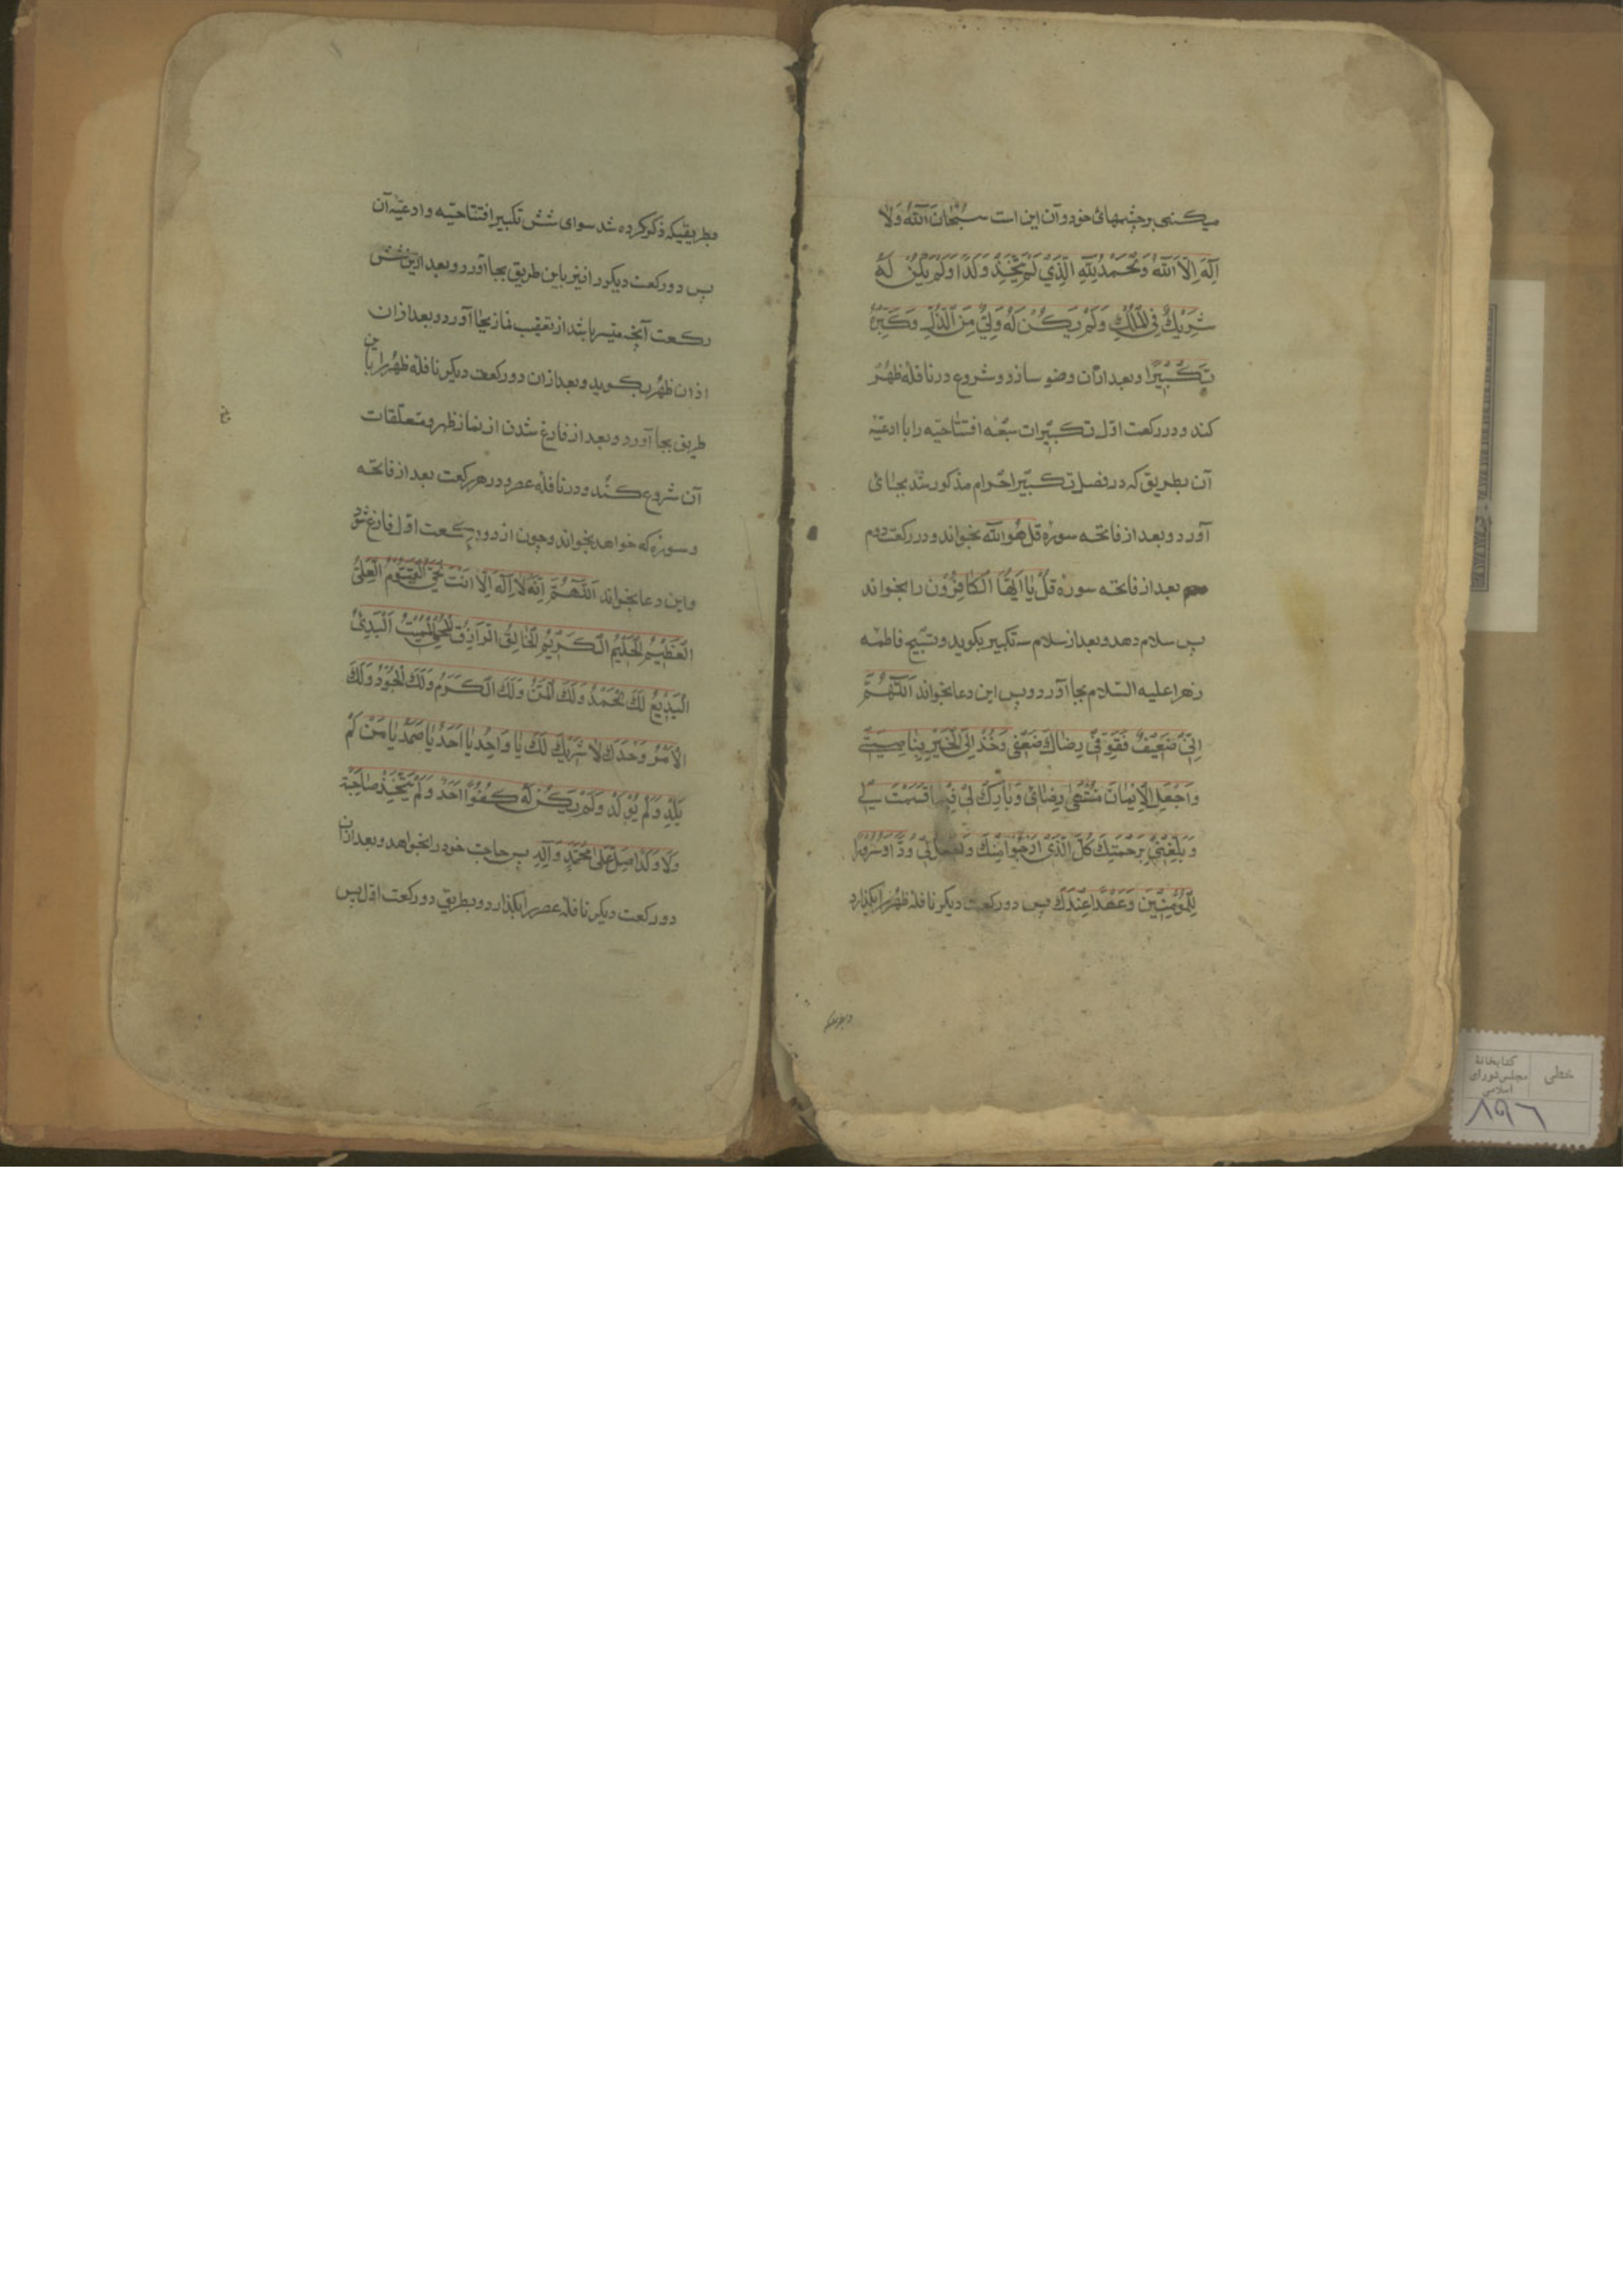 میکنی بر چشمهای خود و آن این است سُبْحانَ اللّهُ وَلا
اِلهَ اِلاّ اللّهُ وَالْحَمْدُ لِلّهِ الَّذي لَمْ يَتَّخِذْ وَلَدًا وَلَمْ يَكُنْ لَهُ
شَرِيكٌ فِي الْمُلْكِ وَلَمْ يَكُنْ لَهُ وَلِيٌّ مِنَ الذُّلِّ وَكَبِّرْهُ
تَكْبِيرًا و بعد از آن وضو سازد و شروع در نافلهٔ ظهر
کند و در رکعت اوّل تکبیرات سبعه افتتاحیّه را با ادعیّهٔ
آن بطریق که در فصل تکبیر احرام مذکور شد بجای
آورد و بعد از فاتحه سورهٔ قل هو اللّه بخواند و در رکعت دوم
بعد از فاتحه سورهٔ قُلْ يا اَيُّهَا الْكافِرُون را بخواند
پس سلام دهد و بعد از سلام سه تکبیر بگوید و تسبیح فاطمه
زهرا علیه السّلام بجا آورد و پس این دعا بخواند اَللّهُمَّ
اِنّي ضَعيفٌ فَقَوِّ في رِضاكَ ضَعْفي وَخُذْ اِلَى الْخَيْرِ بِناصِيَتي
وَاجْعَلِ الْاِيْمانَ مُنْتَهى رِضائي وَبارِكْ لي فيما قَسَمْتَ لي
وَبَلِّغْني بِرَحْمَتِكَ كُلَّ الَّذي اَرْجُوا مِنْكَ وَاجْعَلْ لي وُدًّا وَسُرُورًا
لِلْمُؤْمِنينَ وَعَهْدًا عِنْدَكَ پس دو رکعت دیگر نافلهٔ ظهر را بگذارد
بطریقیکه
و بطریقیکه ذکر کرده شد سوای شش تکبیر افتتاحیّه و ادعیّهٔ آن
پس دو رکعت دیگر را نیز باین طریق بجا آورد و بعد ازین شش
رکعت آنچه میسر باشد از تعقیب نماز بجا آورد و بعد از آن
اذان ظهر بگوید و بعد از آن دو رکعت دیگر نافلهٔ ظهر را باین
طریق بجا آورد و بعد از فارغ شدن از نماز ظهر و متعلّقات
آن شروع کند و در نافلهٔ عصر و در هر رکعت بعد از فاتحه
و سورهٔ که خواهد بخواند و چون از دو رکعت اوّل فارغ شود
و این دعا بخواند اَللّهُمَّ اِنَّهُ لا اِلهَ اِلاّ اَنْتَ الْحَيُّ الْقَيُّومُ الْعَلِيُّ
الْعَظيمُ الْحَليمُ الْكَريمُ الْخالِقُ الرّازِقُ الْمُحْيِي الْمُميتُ الْبَدِئُ
الْبَديعُ لَكَ الْحَمْدُ وَلَكَ الْمَنُّ وَلَكَ الْكَرَمُ وَلَكَ الْجُودُ وَلَكَ
الْاَمْرُ وَحْدَكَ لا شَريكَ لَكَ يا واحِدُ يا اَحَدُ يا صَمَدُ يا مَنْ لَمْ
يَلِدْ وَلَمْ يُولَدْ وَلَمْ يَكُنْ لَهُ كُفُوًا اَحَدٌ وَلَمْ يَتَّخِذْ صاحِبَةً
وَلا وَلَدًا صَلِّ عَلى مُحَمَّدٍ وَآلِهِ پس حاجت خود را بخواهد و بعد از آن
دو رکعت دیگر نافلهٔ عصر را بگذارد و بطریق دو رکعت اوّل پس
خطی
کتابخانهٔ
مجلس شورای
اسلامی
۸۹۶